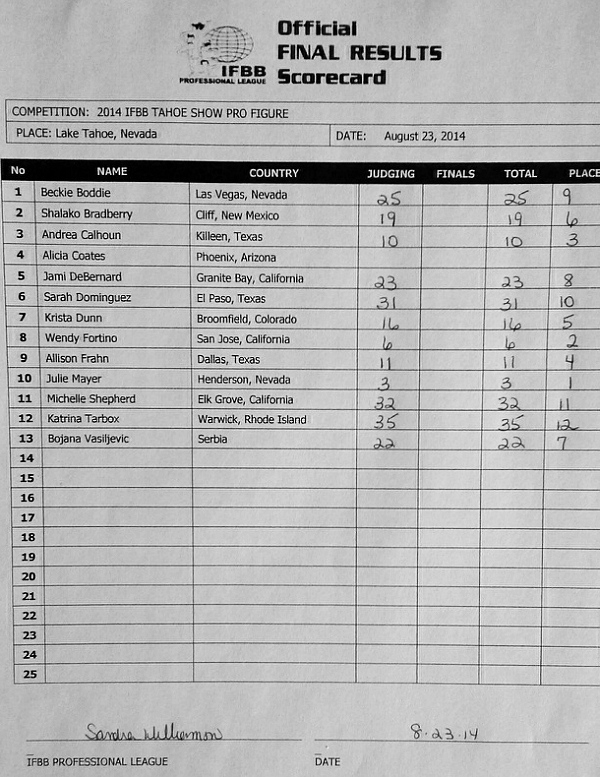 Official
FINAL RESULTS
Scorecard
IFBB
PROFESSIONAL LEAGUE
COMPETITION: 2014 IFBB TAHOE SHOW PRO FIGURE
PLACE: Lake Tahoe, Nevada DATE: August 23, 2014
No NAME COUNTRY JUDGING FINALS TOTAL PLACE
1 Beckie Boddie Las Vegas, Nevada 25 25 9
2 Shalako Bradberry Cliff, New Mexico 19 19 6
3 Andrea Calhoun Killeen, Texas 10 10 3
4 Alicia Coates Phoenix, Arizona
5 Jami DeBernard Granite Bay, California 23 23 8
6 Sarah Dominguez El Paso, Texas 31 31 10
7 Krista Dunn Broomfield, Colorado 16 16 5
8 Wendy Fortino San Jose, California 6 6 2
9 Allison Frahn Dallas, Texas 11 11 4
10 Julie Mayer Henderson, Nevada 3 3 1
11 Michelle Shepherd Elk Grove, California 32 32 11
12 Katrina Tarbox Warwick, Rhode Island 35 35 12
13 Bojana Vasiljevic Serbia 22 22 7
14
15
16
17
18
19
20
21
22
23
24
25
Sandra Williamson 8·23·14
IFBB PROFESSIONAL LEAGUE DATE